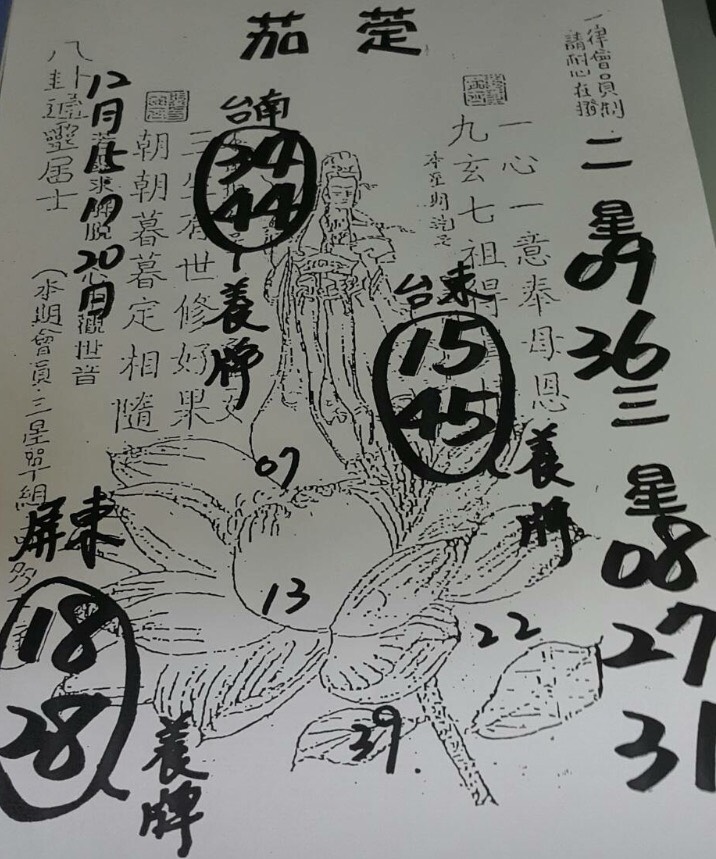 茄萣
一律會員制
請耐心在撥
二星
09
36
三星
08
27
31
一心一意奉母恩
九玄七祖得
台東
15
45
養牌
台南
34
44
養牌
世修好果
朝朝暮暮定相隨
觀世音
12月15.17
20日
八卦通靈居士
(本期會員三星單組
屏東
18
28
養牌
07
13
22
39